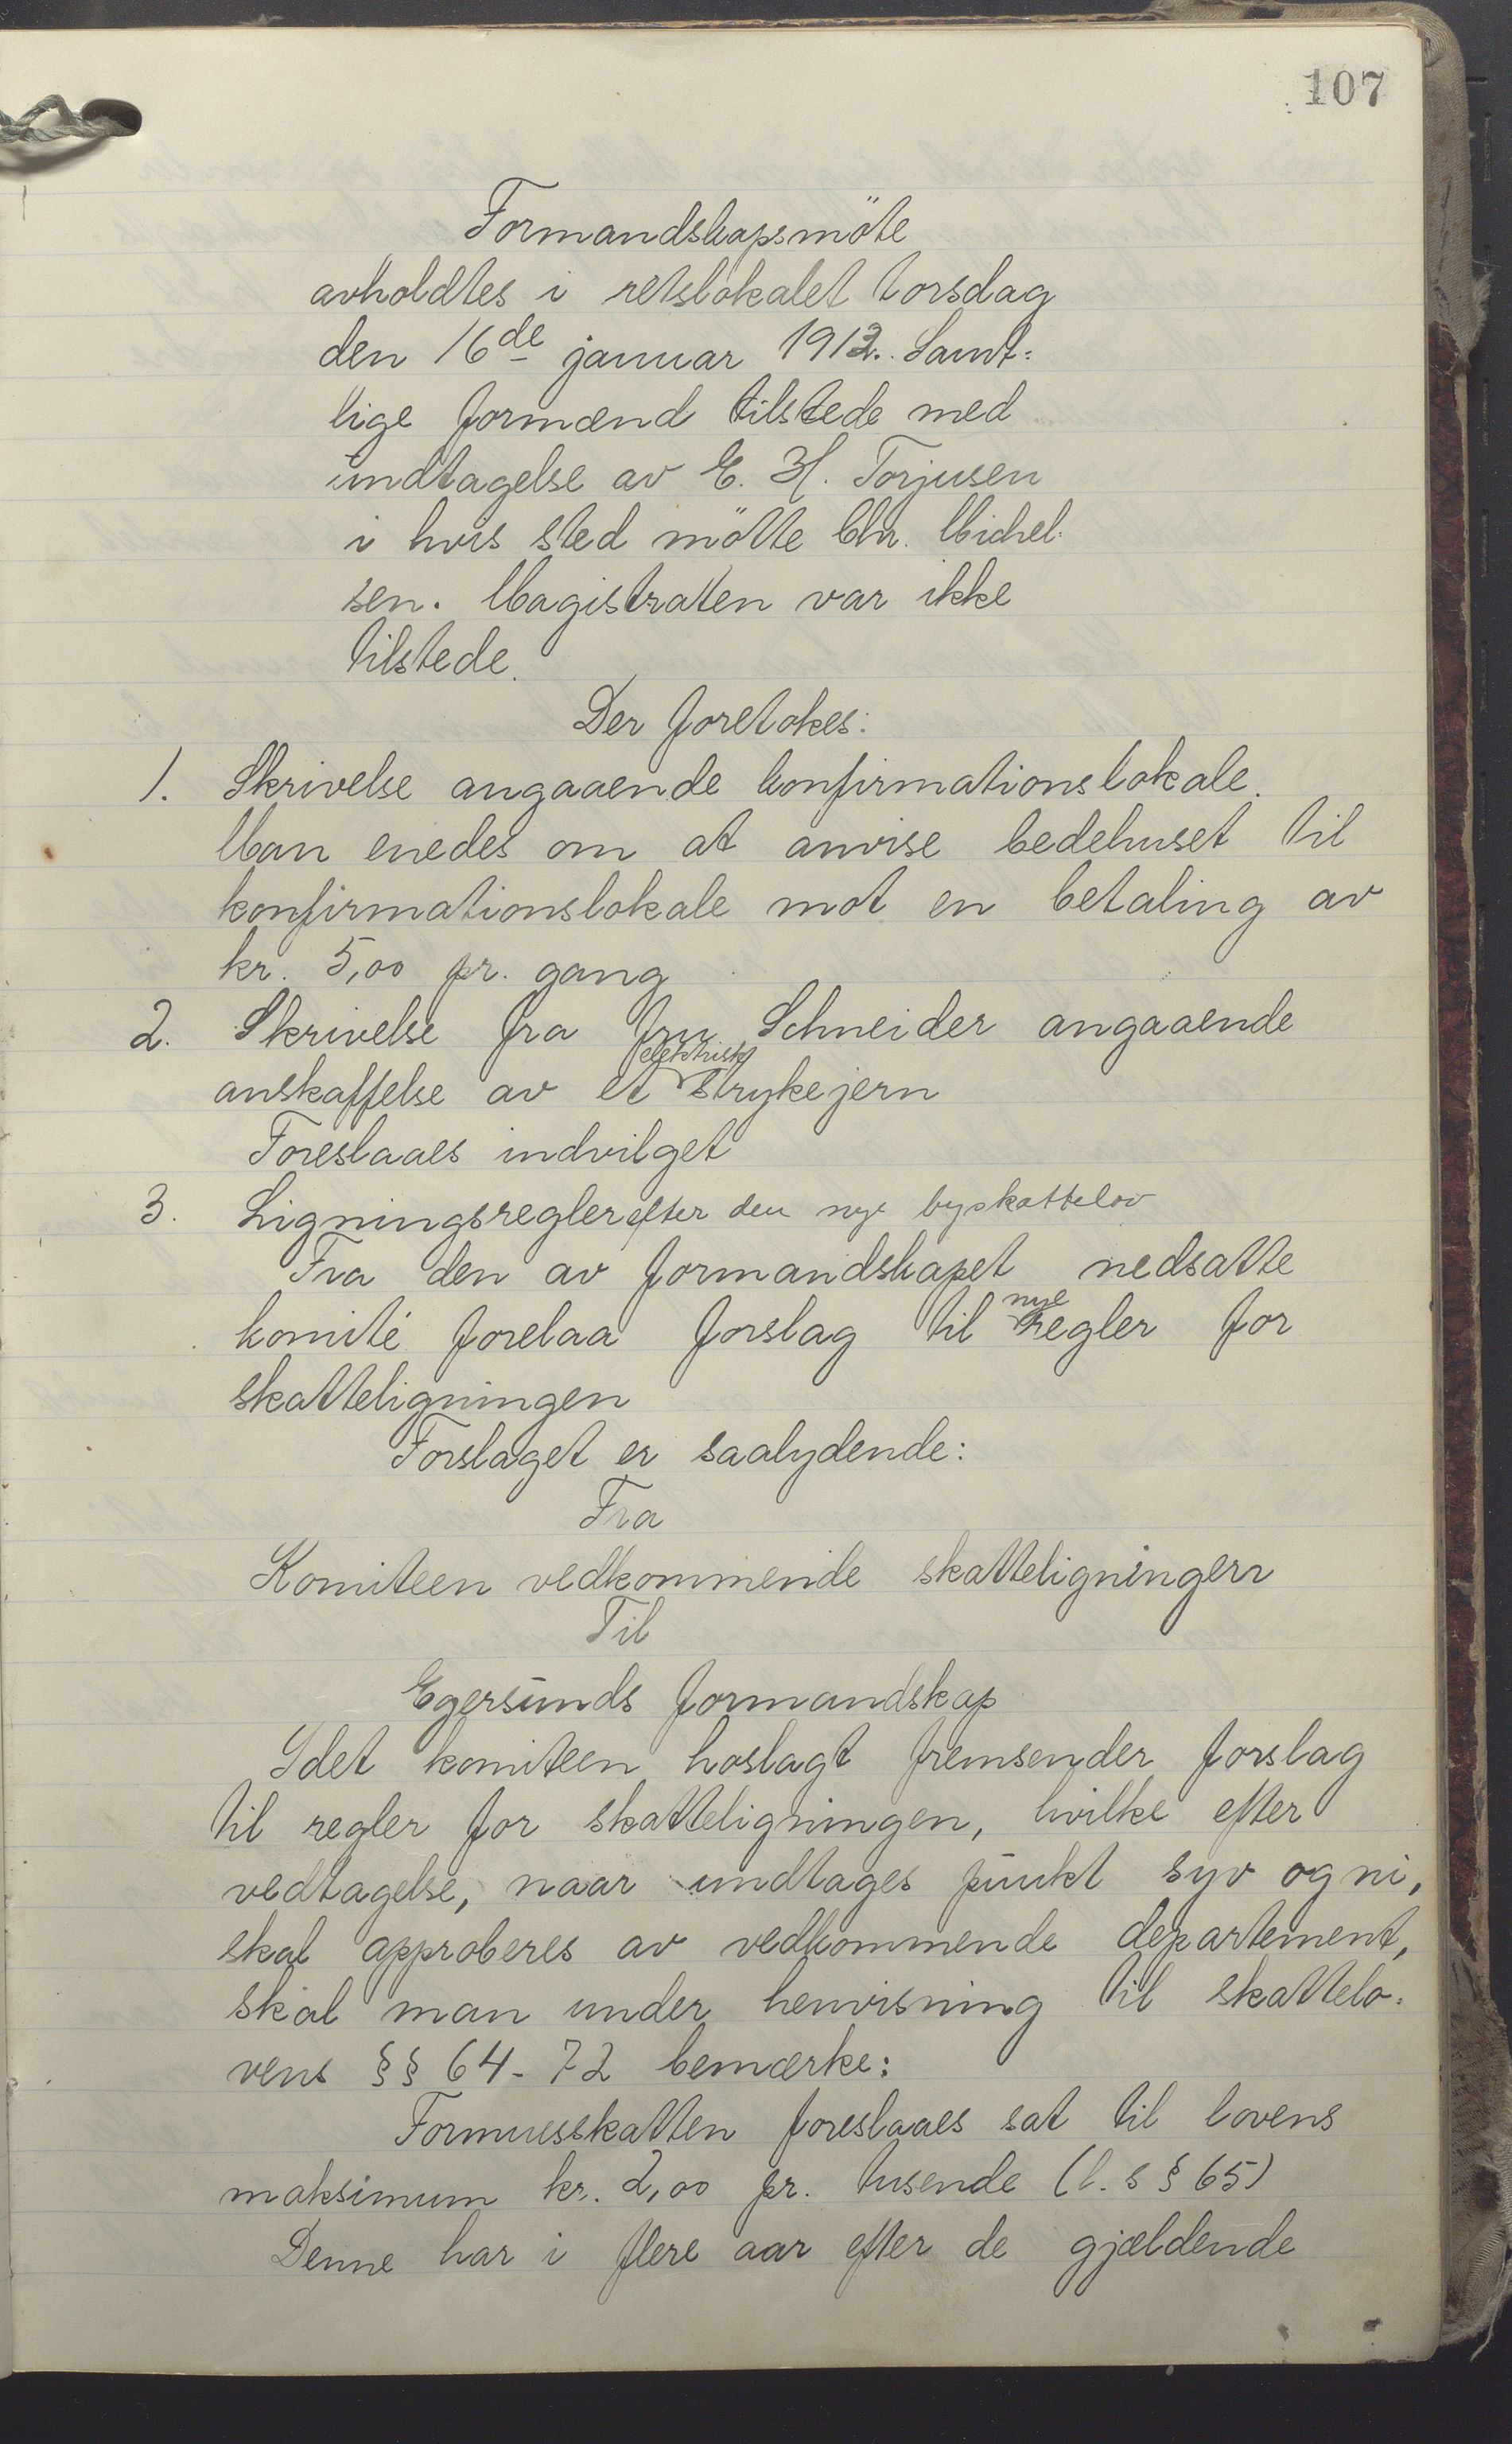 107
Formandskapsmöte
avholdtes i retslokalet torsdag
den 16de januar 1913. Samt-
lige formænd tilstede med
undtagelse av E. H. Torjusen
i hvis sted mötte Chr. Michel-
sen. Magistraten var ikke
tilstede.
Der foretokes:
1. Skrivelse angaaende konfirmationslokale.
Man enedes om at anvise bedehuset til
konfirmationslokale mot en betaling av
kr. 5,00 pr. gang
2. Skrivelse fra fru Schneider angaaende
elektrisk
anskaffelse av et strykejern
Foreslaaes indvilget
3. Ligningsregler efter den nye byskattelov
Fra den av formandskapet nedsatte
nye
komité forelaa forslag til regler for
skatteligningen
Forslaget er saalydende:
Fra
Komiteen vedkommende skatteligningen
Til
Egersunds formandskap
Idet komiteen hoslagt fremsender forslag
til regler for skatteligningen, hvilke efter
vedtagelse, naar undtages punkt syv og ni,
skal approberes av vedkommende departement,
skal man under henvisning til skattelo-
vens §§ 64-72 bemærke:
Formuesskatten foreslaaes sat til lovens
maksimum kr. 2,00 pr. tusende (l. s § 65)
Denne har i flere aar efter de gjældende